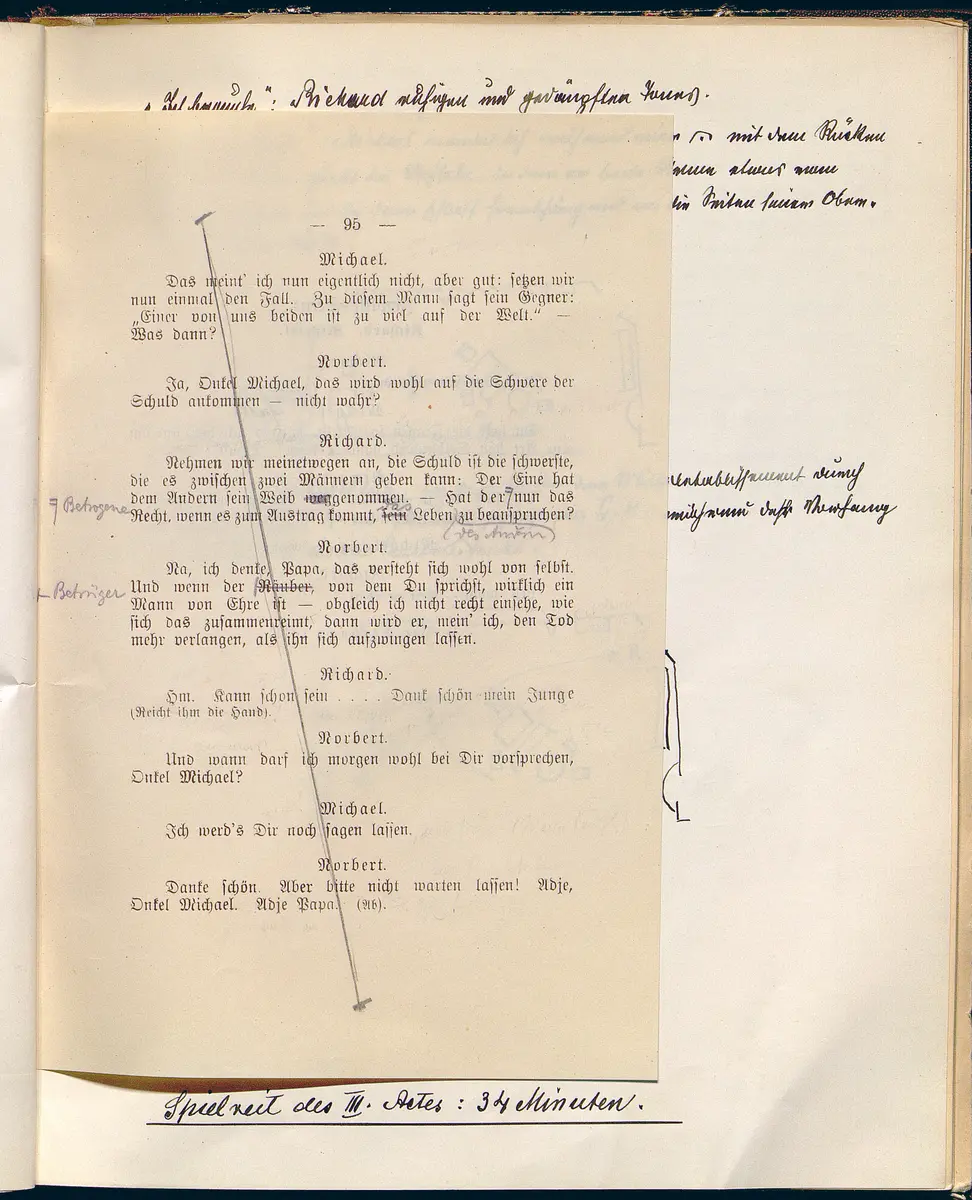 Richard ruhigen und gedämpften Tones.
mit dem Rücken
etwas vom
die Seiten seines Ober-
— 95 —
Michael.
Das meint' ich nun eigentlich nicht, aber gut: setzen wir
nun einmal den Fall. Zu diesem Mann sagt sein Gegner:
„Einer von uns beiden ist zu viel auf der Welt.“ —
Was dann?
Norbert.
Ja, Onkel Michael, das wird wohl auf die Schwere der
Schuld ankommen — nicht wahr?
Richard.
Nehmen wir meinetwegen an, die Schuld ist die schwerste,
die es zwischen zwei Männern geben kann: Der Eine hat
dem Andern sein Weib weggenommen. — Hat der nun das
Betrogene
Recht, wenn es zum Austrag kommt, sein Leben zu beanspruchen?
das
(des Andern)
Norbert.
Na, ich denke, Papa, das versteht sich wohl von selbst.
Und wenn der Räuber, von dem Du sprichst, wirklich ein
Betrüger
Mann von Ehre ist — obgleich ich nicht recht einsehe, wie
sich das zusammenreimt, dann wird er, mein' ich, den Tod
mehr verlangen, als ihn sich aufzwingen lassen.
Richard.
Hm. Kann schon sein . . . . Dank schön mein Junge
(Reicht ihm die Hand).
Norbert.
Und wann darf ich morgen wohl bei Dir vorsprechen,
Onkel Michael?
Michael.
Ich werd's Dir noch sagen lassen.
Norbert.
Danke schön. Aber bitte nicht warten lassen! Adje,
Onkel Michael. Adje Papa. (Ab).
durch
Vorhang
Spielzeit des III. Actes : 34 Minuten.